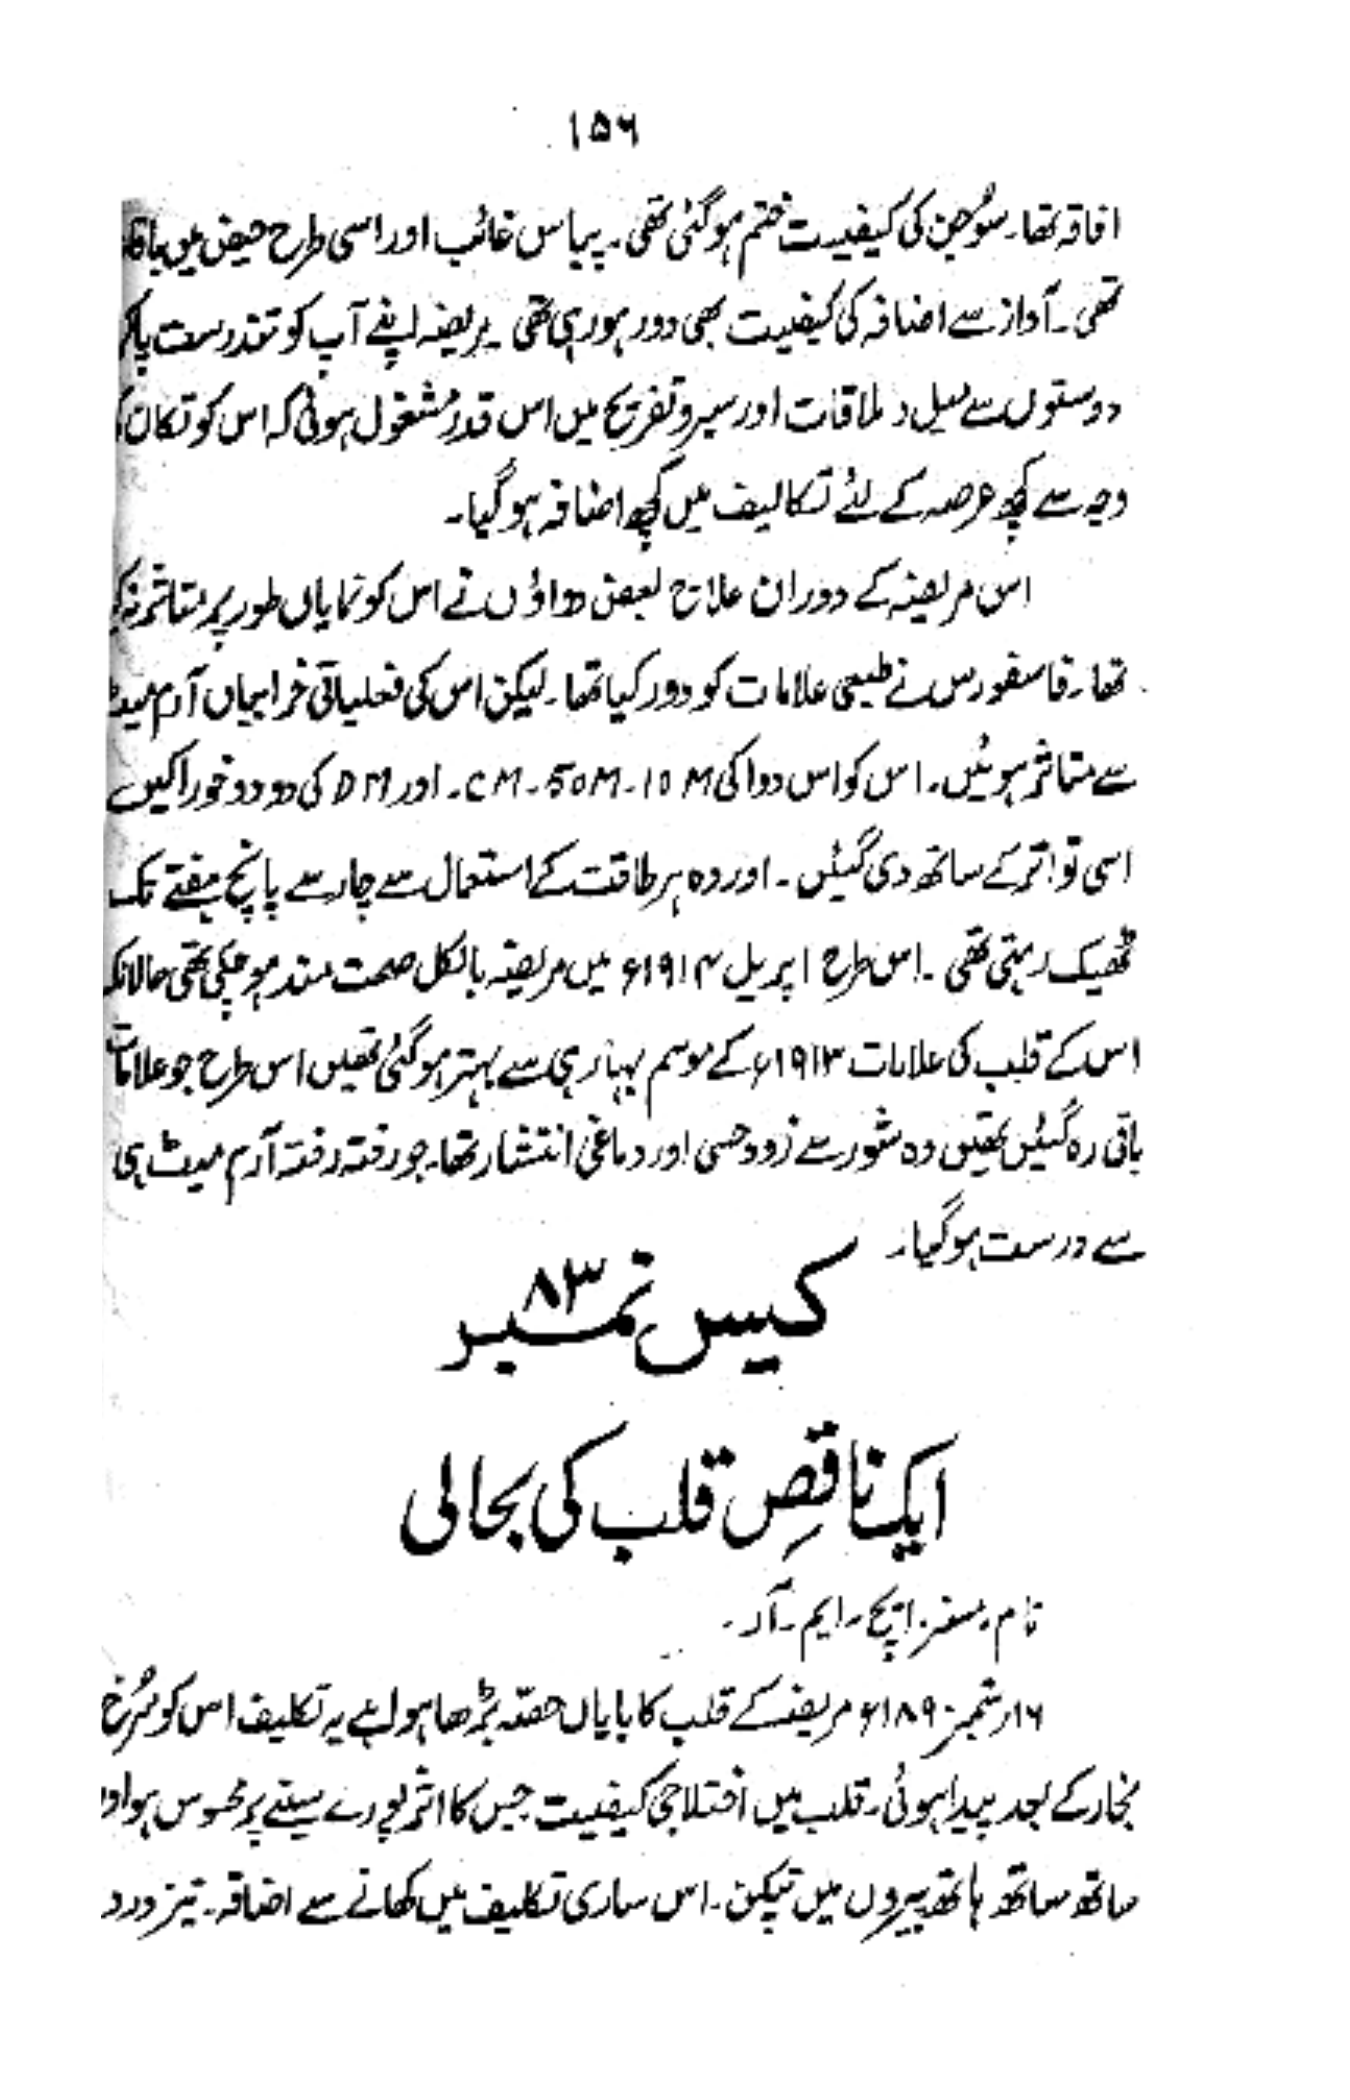 ۱۵۶
افاقہ تھا۔ سوُجن کی کیفیت ختم ہوگئی تھی۔ پیاس غائب اور اسی طرح حیض میں
تھی۔ آواز سے اضافہ کی کیفیت بھی دور ہورہی تھی۔ مریضہ اپنے آپ کو تندرست پاکر
دوستوں سے میل و ملاقات اور سیر و تفریح میں اس قدر مشغول ہوئی کہ اس کو تکان
وجہ سے کچھ عرصہ کے لئے تکالیف میں کچھ اضافہ ہوگیا۔
اس مریضہ کے دوران علاج بعض دواؤں نے اس کو نمایاں طور پر متاثر
تھا۔ فاسفورس نے طبعی علامات کو دور کیا تھا۔ لیکن اس کی فعلیاتی خرابیاں آرم میٹ
سے متاثر ہوئیں۔ اس کو اس دوا کی 10M۔ 50M۔ CM۔ اور DM کی دو دو خوراکیں
اسی تواتر کے ساتھ دی گیئں۔ اور وہ ہر طاقت کے استعمال سے چار سے پانچ ہفتے تک
ٹھیک رہتی تھی۔ اس طرح اپریل ۱۹۱۴ء میں مریضہ بالکل صحت مند ہوچکی تھی حالانکہ
اس کے قلب کی علامات ۱۹۱۳ء کے موسم بہار ہی سے بہتر ہوگئی تھیں اس طرح جو علامات
باقی رہ گیئں تھیں وہ شور سے زود حسی اور دماغی انتشار تھا۔ جو رفتہ رفتہ آرم میٹ ہی
سے درست ہوگیا۔
کیس نمبر ۸۳
ایک ناقصِ قلب کی بحالی
نام۔ مسز۔ ایچ۔ ایم۔ آر۔
۱۶؍ ستمبر ۱۸۹۰ء مریضہ کے قلب کا بایاں حصّہ بڑھا ہوا ہے یہ تکلیف اس کو سُرخ
بخار کے بعد پیدا ہوئی۔ قلب میں اختلاجی کیفیت جس کا اثر پورے سینے پر محسوس ہو اور
ساتھ ساتھ ہاتھ پیروں میں تپکن۔ اس ساری تکلیف میں کھانے سے اضافہ۔ تیز درد